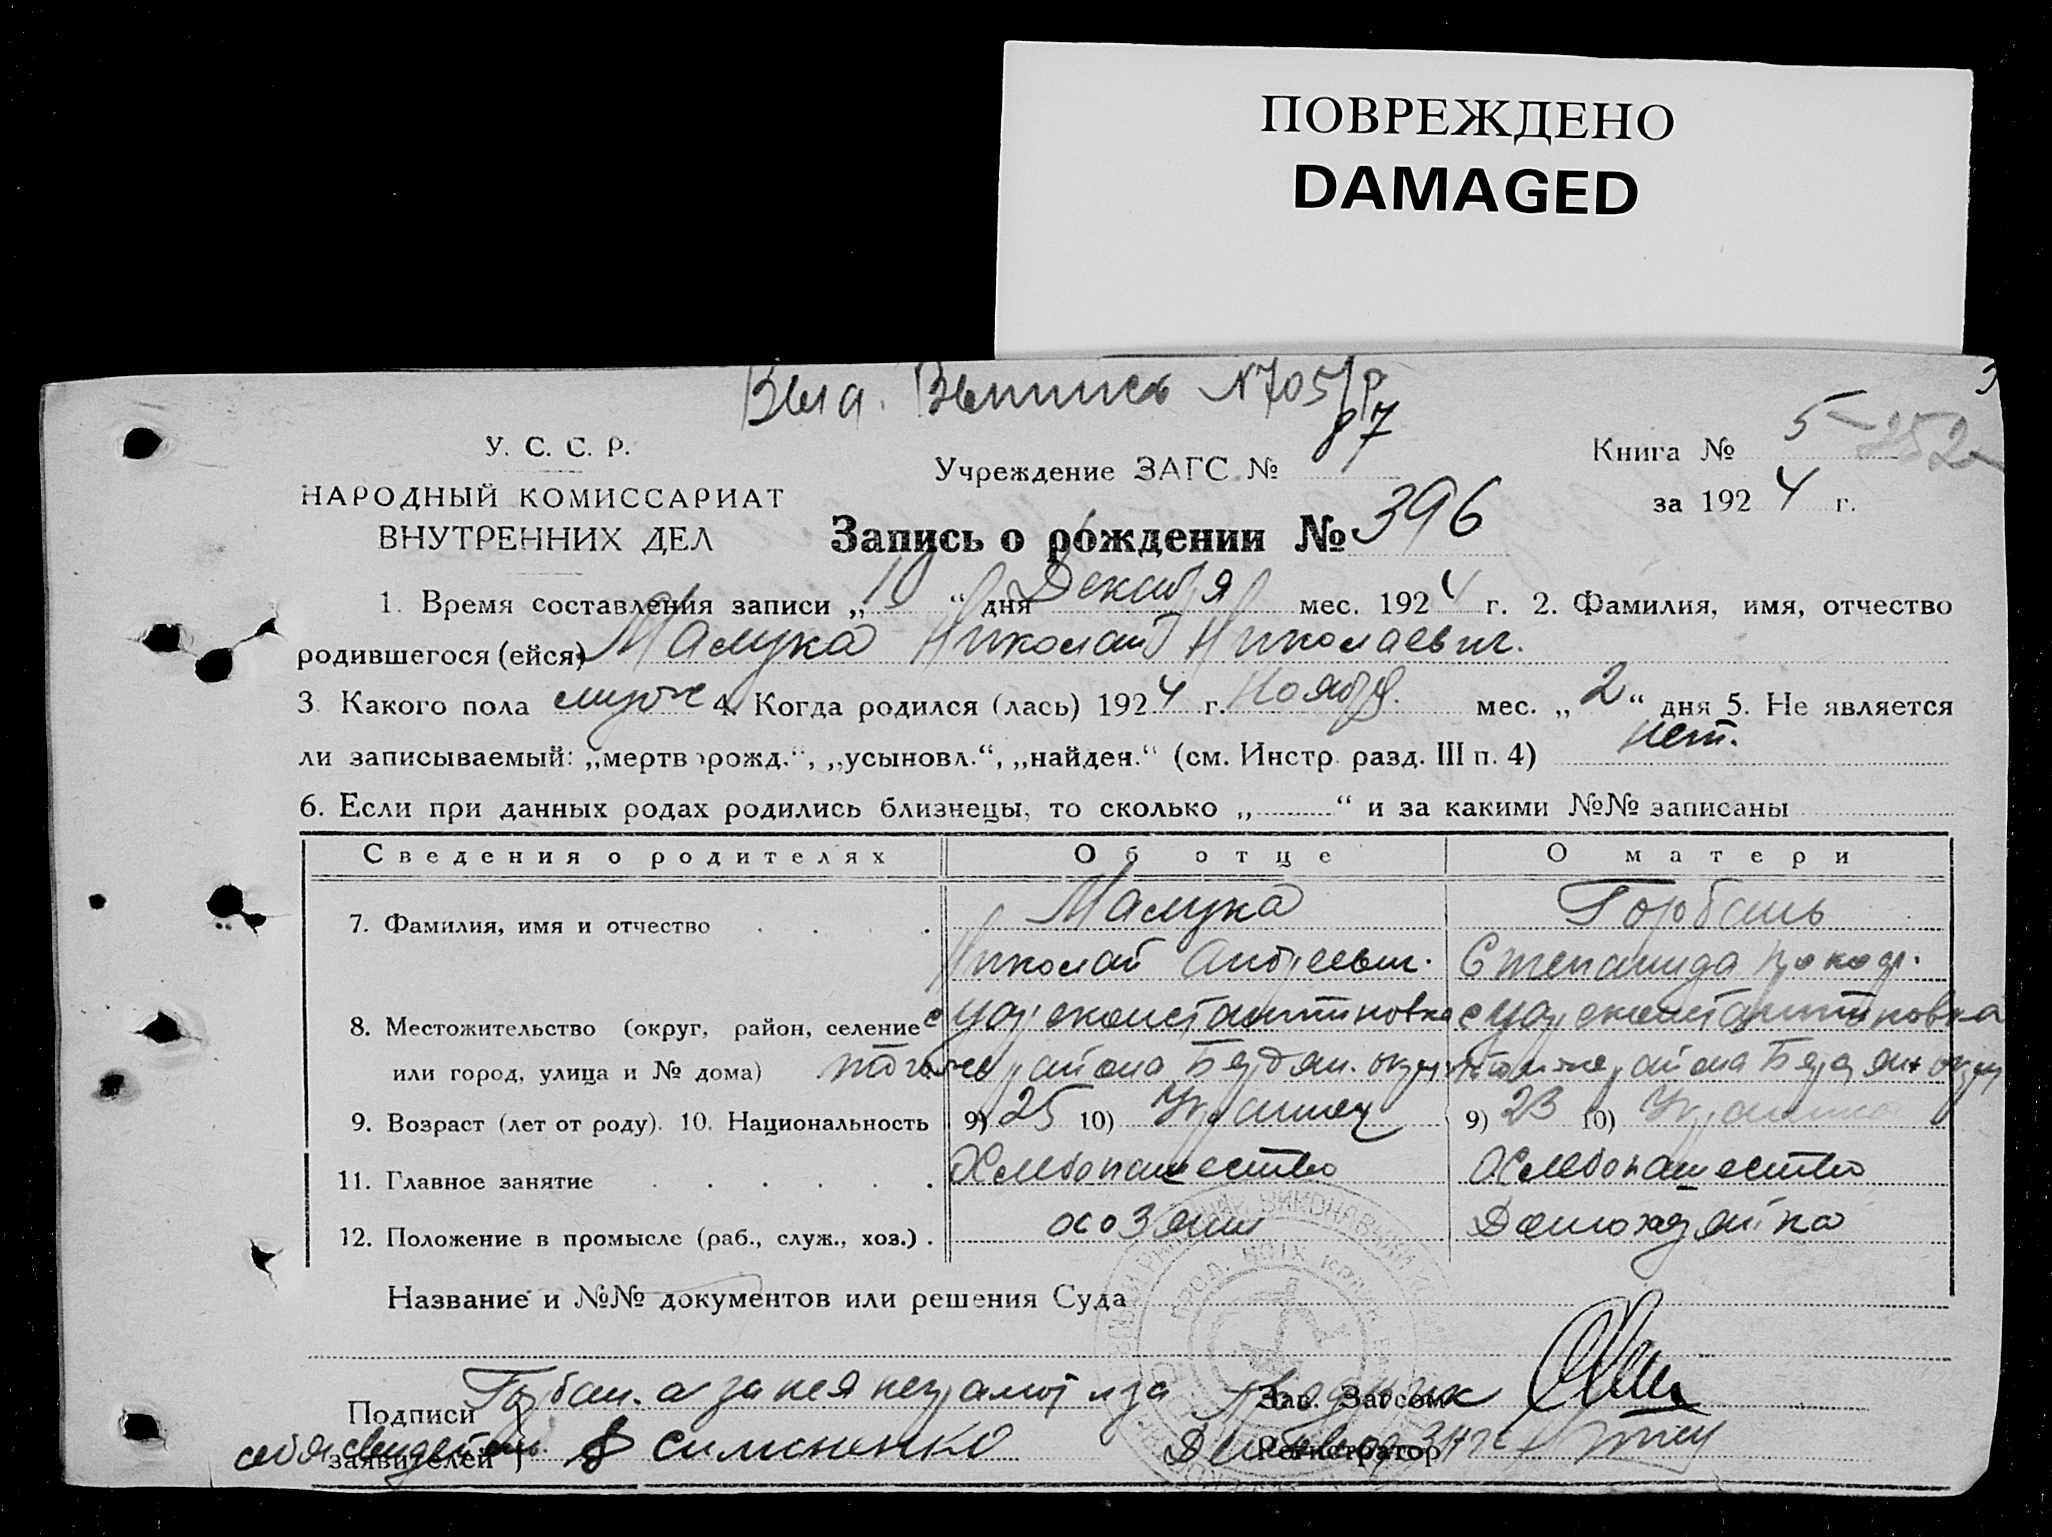 ПОВРЕЖДЕНО
DAMAGED
Выд. Выпись №705/Р
87
У. С. С. Р.
НАРОДНЫЙ КОМИССАРИАТ
ВНУТРЕННИХ ДЕЛ
Учреждение ЗАГС №
Книга № 5 252
за 1924 г.
Запись о рождении № 396
1. Время составления записи „10“ дня Декабря мес. 1924 г. 2. Фамилия, имя, отчество
родившегося (ейся) Малука Николай Николаевич.
3. Какого пола муж 4. Когда родился (лась) 1924 г. Ноября мес. „2“ дня 5. Не является
ли записываемый: „мертворожд.“, „усыновл.“, „найден.“ (см. Инстр. разд. III п. 4) нет.
6. Если при данных родах родились близнецы, то сколько „ “ и за какими №№ записаны
Сведения о родителях Об отце О матери
7. Фамилия, имя и отчество Малука Горбань
Николай Андреевич. Степанида
8. Местожительство (округ, район, селение
или город, улица и № дома) района Бердян. округ района Бердян округ
9. Возраст (лет от роду). 10. Национальность 9) 25 10) Украинец 9) 23 10) Украинка
11. Главное занятие Хлебопашество Хлебопашество
12. Положение в промысле (раб., служ., хоз.) хозяин Домохозяйка
Название и №№ документов или решения Суда
Подписи
заявителей
Горбан. а за нея неграмот и за
себя свидетель Симоненко
Зав. Загсом
Регистратор